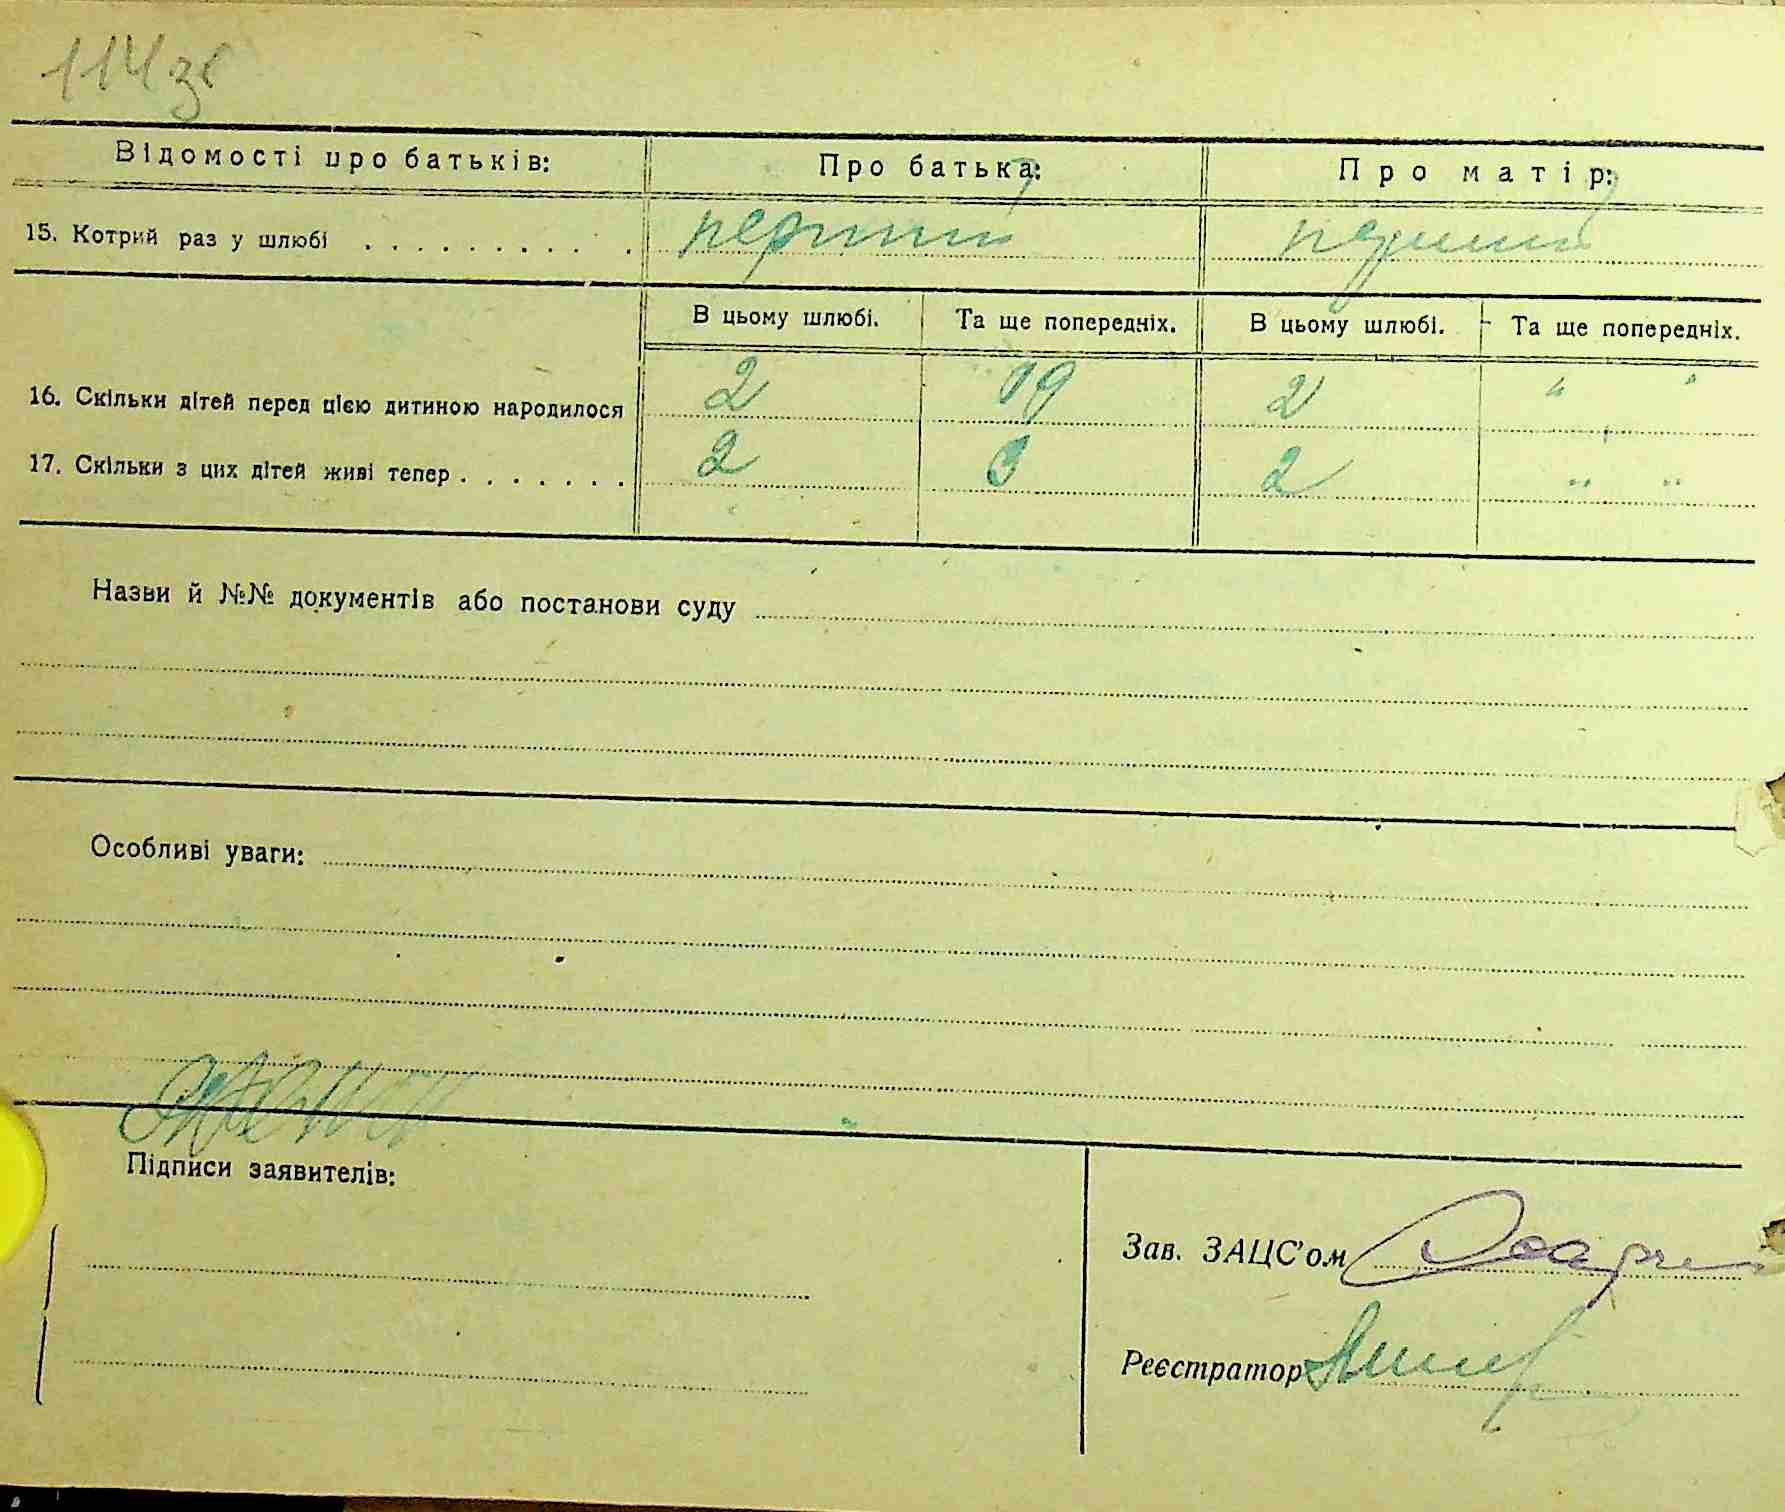 114 зв
Відомості про батьків: Про батька: Про матір:
15. Котрий раз у шлюбі . . . . . . . . . . перший перший
В цьому шлюбі. Та ще попередніх. В цьому шлюбі. Та ще попередніх.
16. Скільки дітей перед цією дитиною народилося 2 2 " "
17. Скільки з цих дітей живі тепер . . . . . . . 2 3 2 " "
Назви й №№ документів або постанови суду
Особливі уваги:
Підписи заявителів:
Зав. ЗАЦС'ом
Реєстратор